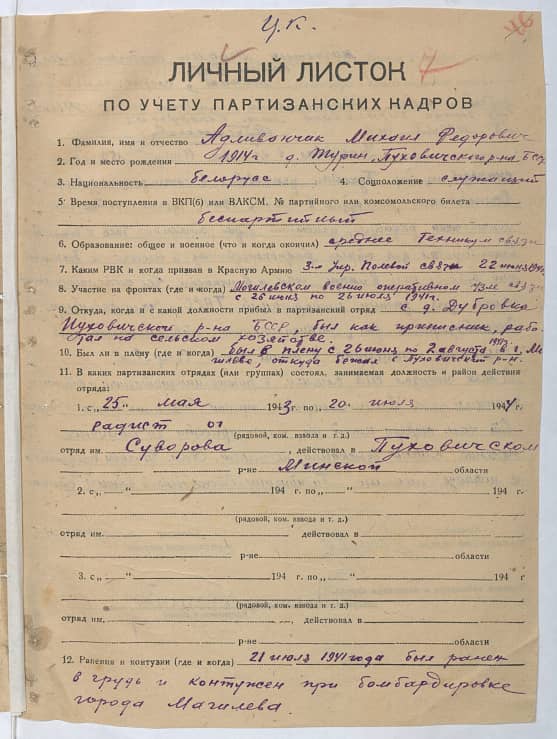 Ц.К.
7
ЛИЧНЫЙ ЛИСТОК
ПО УЧЕТУ ПАРТИЗАНСКИХ КАДРОВ
1. Фамилия, имя и отчество Адливанчик Михаил Федорович
2. Год и место рождения 1914г д. Турин, Пуховичского р-на БССР
3. Национальность белорусс 4. Соцположение служащий
5. Время поступления в ВКП(б) или ВЛКСМ, № партийного или комсомольского билета
беспартийный
6. Образование: общее и военное (что и когда окончил) среднее Техникум связи
7. Каким РВК и когда призван в Красную Армию 3-м Упр. Полевой связи 22 июня
8. Участие на фронтах (где и когда) Могилевском военно оперативном узл. связи
с 26 июня по 26 июля 1941г.
9. Откуда, когда и с какой должности прибыл в партизанский отряд с д. Дубровка
Пуховичской р-на БССР, был как приписник, рабо
отал на сельском хозяйстве.
10. Был ли в плену (где и когда) был в плену с 26 июня по 2 августа 1941г в г. Мо
гилеве, откуда бежал в Пуховичский р-н.
11. В каких партизанских отрядах (или группах) состоял, занимаемая должность и район действия
отряда:
1. с „25" мая 1943 г. по „20" июля 1944 г.
радист от
(рядовой, ком. взвода и т. д.)
отряд им. Суворова, действовал в Пуховичском
р-не Минской области
2. с „ " 194 г. по „ " 194 г.
(рядовой, ком. взвода и т. д.)
отряд им. действовал в
р-не области
3. с „ " 194 г. по „ " 194 г.
(рядовой, ком. взвода и т. д.)
отряд им. действовал в
р-не области
12. Ранения и контузии (где и когда) 21 июля 1941 года был ранен
в грудь и контужен при бомбардировке
города Магилева.